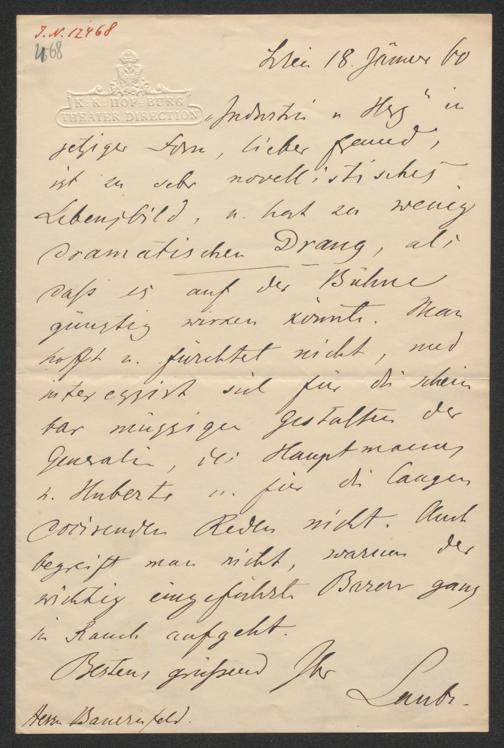 J.N. 12468
468
K. K. HOF-BURG
THEATER DIRECTION
Wien 18. Jänner 60
„Industrie u Herz" in
jetziger Form, lieber Freund,
ist zu sehr novellistisches
Lebensbild, u. hat zu wenig
dramatischen Drang, als
daß es auf der Bühne
günstig wirken könnte. Man
hofft u. fürchtet nicht, und
interessirt sich für die schein
bar müssigen Gestalten der
Generalin, des Hauptmanns
u. Huberts u. für die langen
Reden nicht. Auch
begreift man nicht, warum der
wichtig eingeführte Baron ganz
in Rauch aufgeht.
Bestens grüssend Ihr
Laube.
Herrn Bauernfeld.